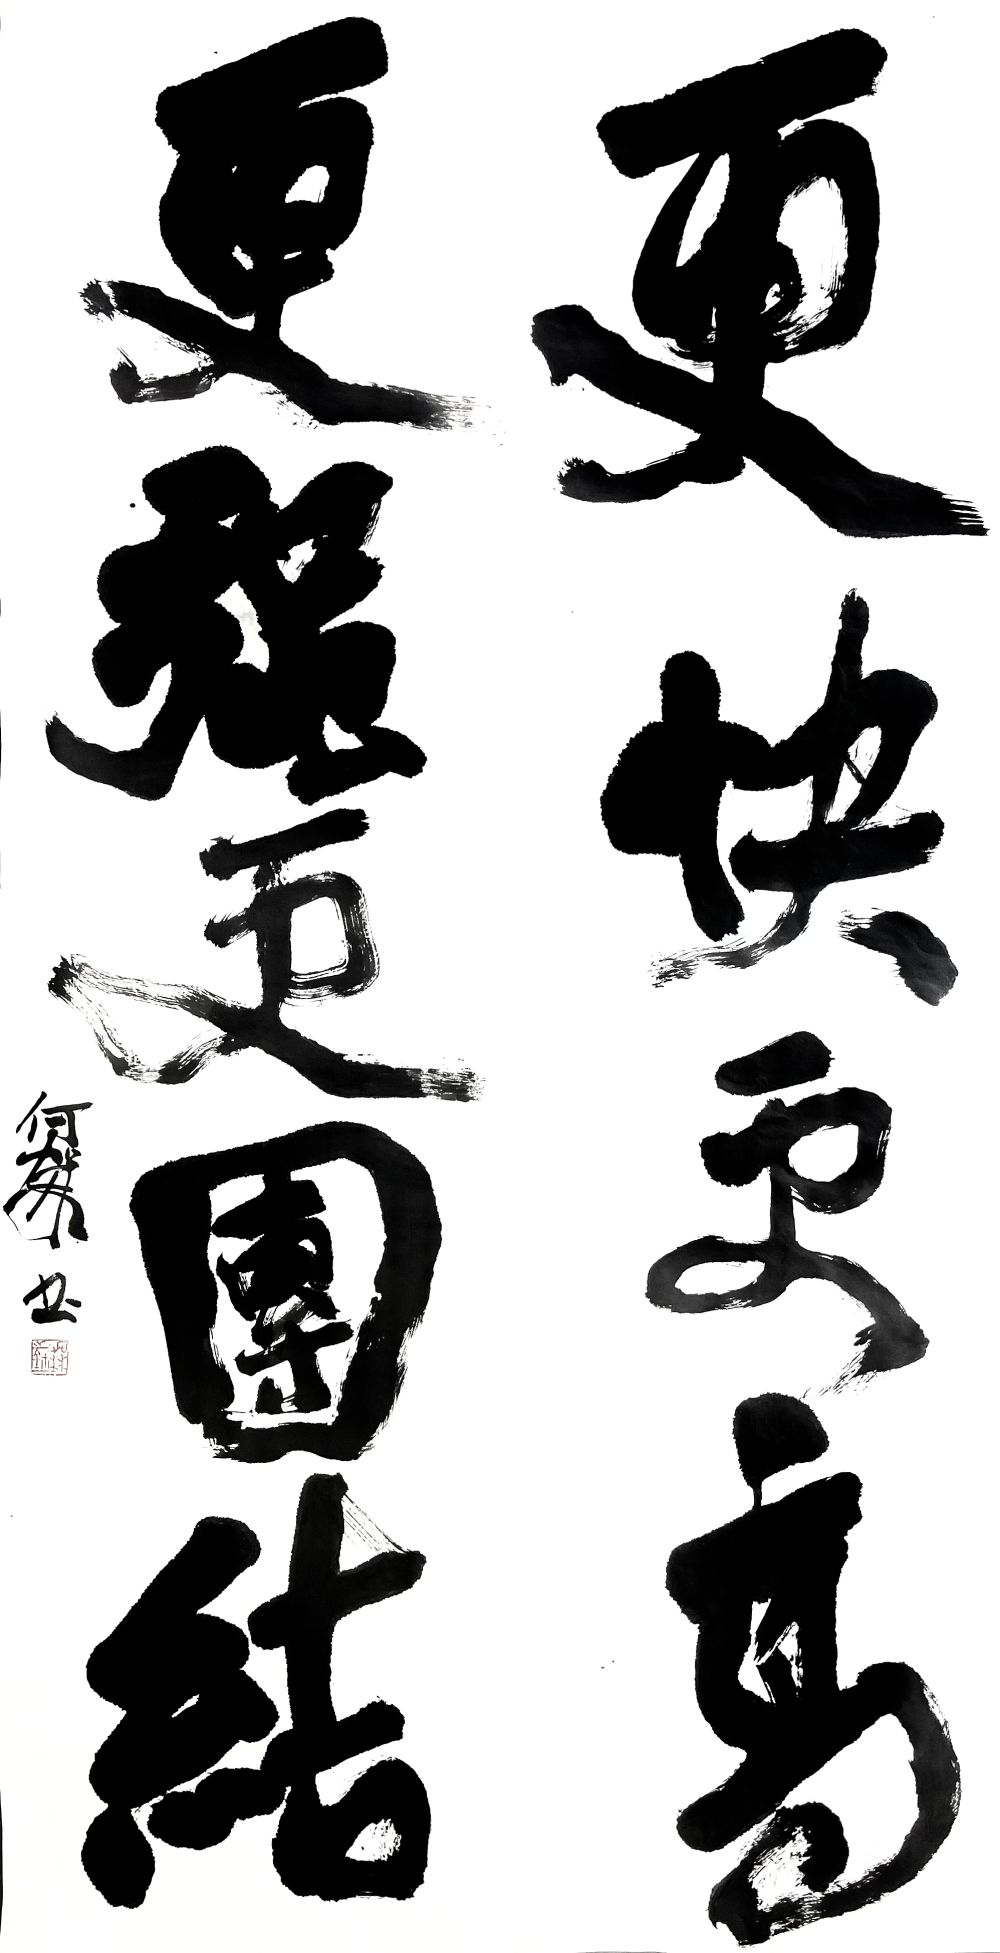 更快更高
更强更團結
何 书